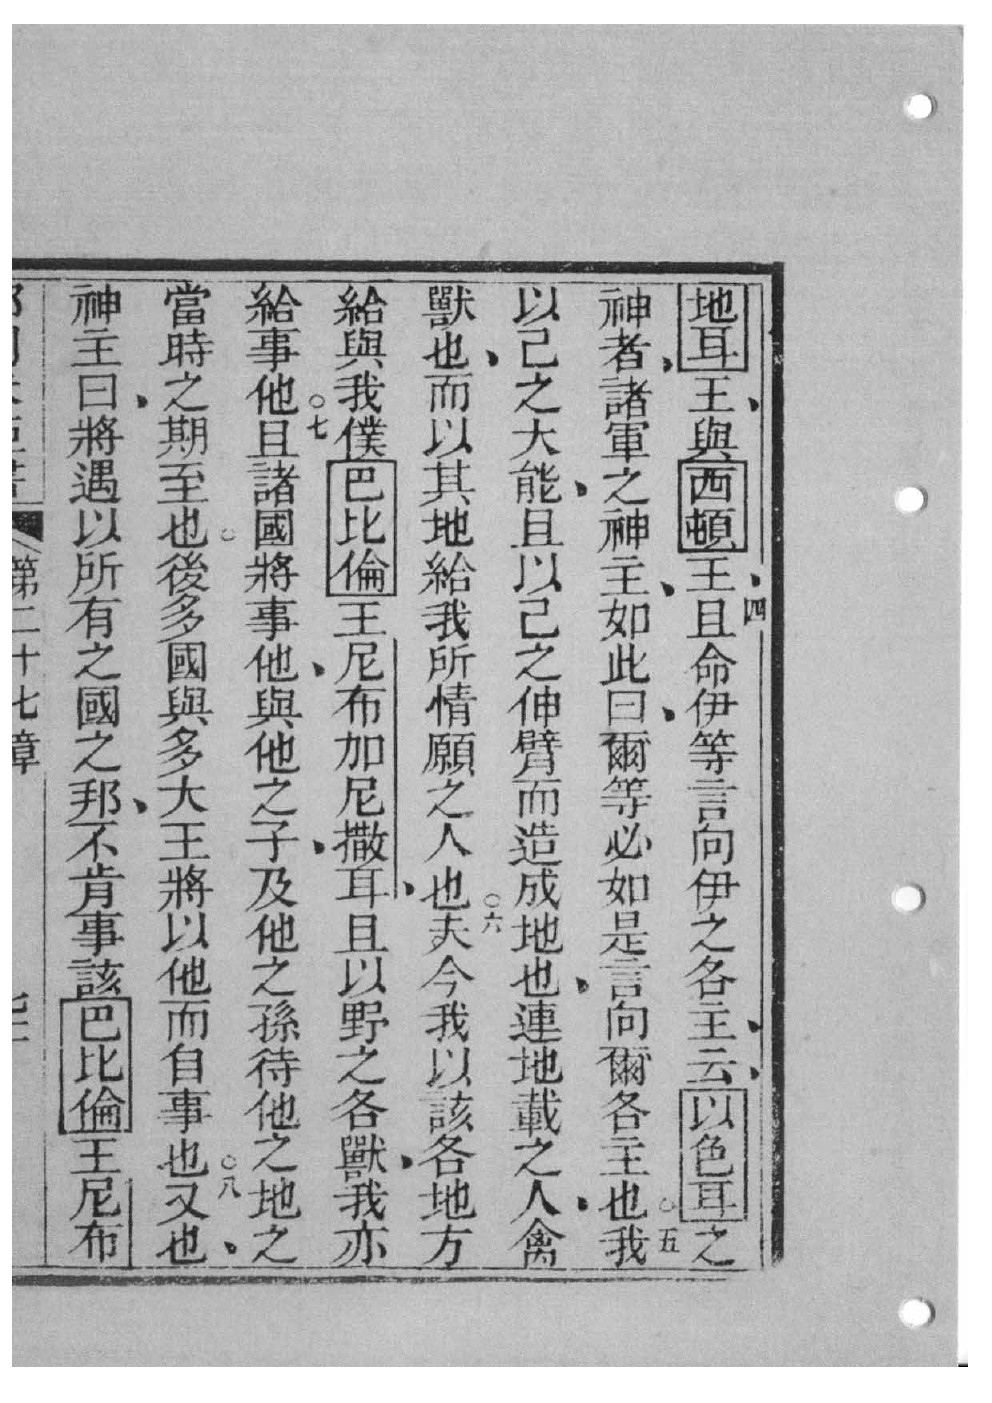 地耳王、與西頓王、四且命伊等言向伊之各主、云、以色耳之
神者、諸軍之神主、如此曰、爾等必如是言向爾各主也○五我
以己之大能、且以己之伸臂而造成地也、連地載之人、禽
獸也、而以其地給我所情願之人也○六夫今我以該各地方
給與我僕巴比倫王尼布加尼撒耳、且以野之各獸、我亦
給事他○七且諸國將事他、與他之子、及他之孫待他之地之
當時之期至也○後多國與多大王將以他而自事也○八又也、
神主曰、將遇以所有之國之邦、不肯事該巴比倫王尼布
第二十七章